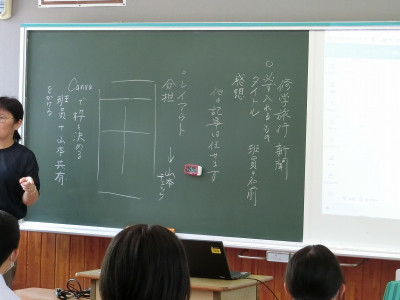 修学旅行 新聞
○必ず入れるもの
タイトル 班員の名前
感想
他の記事は任せます
○レイアウト → 山本
分担
Canvaで枠を決める
班員+山本共有
をかける